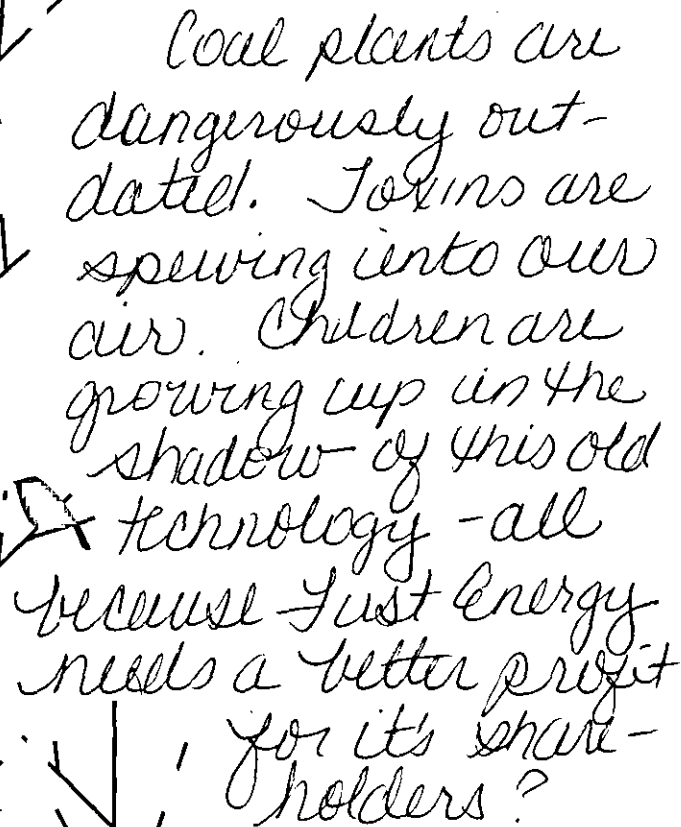 Coal plants are
dangerously out-
dated. Toxins are
spewing into our
air. Children are
growing up in the
shadow of this old
technology - all
because First Energy
needs a better profit
for it's share-
holders?